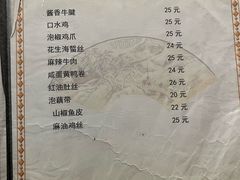 酱香牛腱 25 元
口水鸡 25 元
泡椒鸡爪 25 元
花生海蜇丝 24 元
麻辣牛肉 25 元
咸蛋黄鸭卷 24 元
红油肚丝 26 元
泡藕带 20 元
山椒鱼皮 22 元
麻油鸡丝 25 元